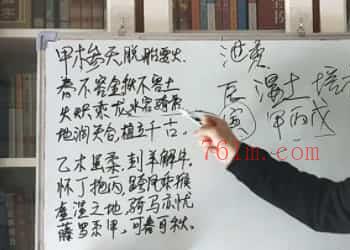 甲木参天 脱胎要火.
春不容金秋不容土
火炽乘龙水宕骑虎
地润天合,植立千古.
乙木虽柔,刲羊解牛.
怀丁抱丙,跨凤乘猴
虚湿之地,骑马亦忧
藤萝系甲,可春可秋.
泄
辰 湿土 培
寅 甲丙戊